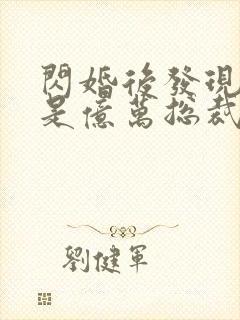 閃婚後發現
是億萬總裁
劉健軍